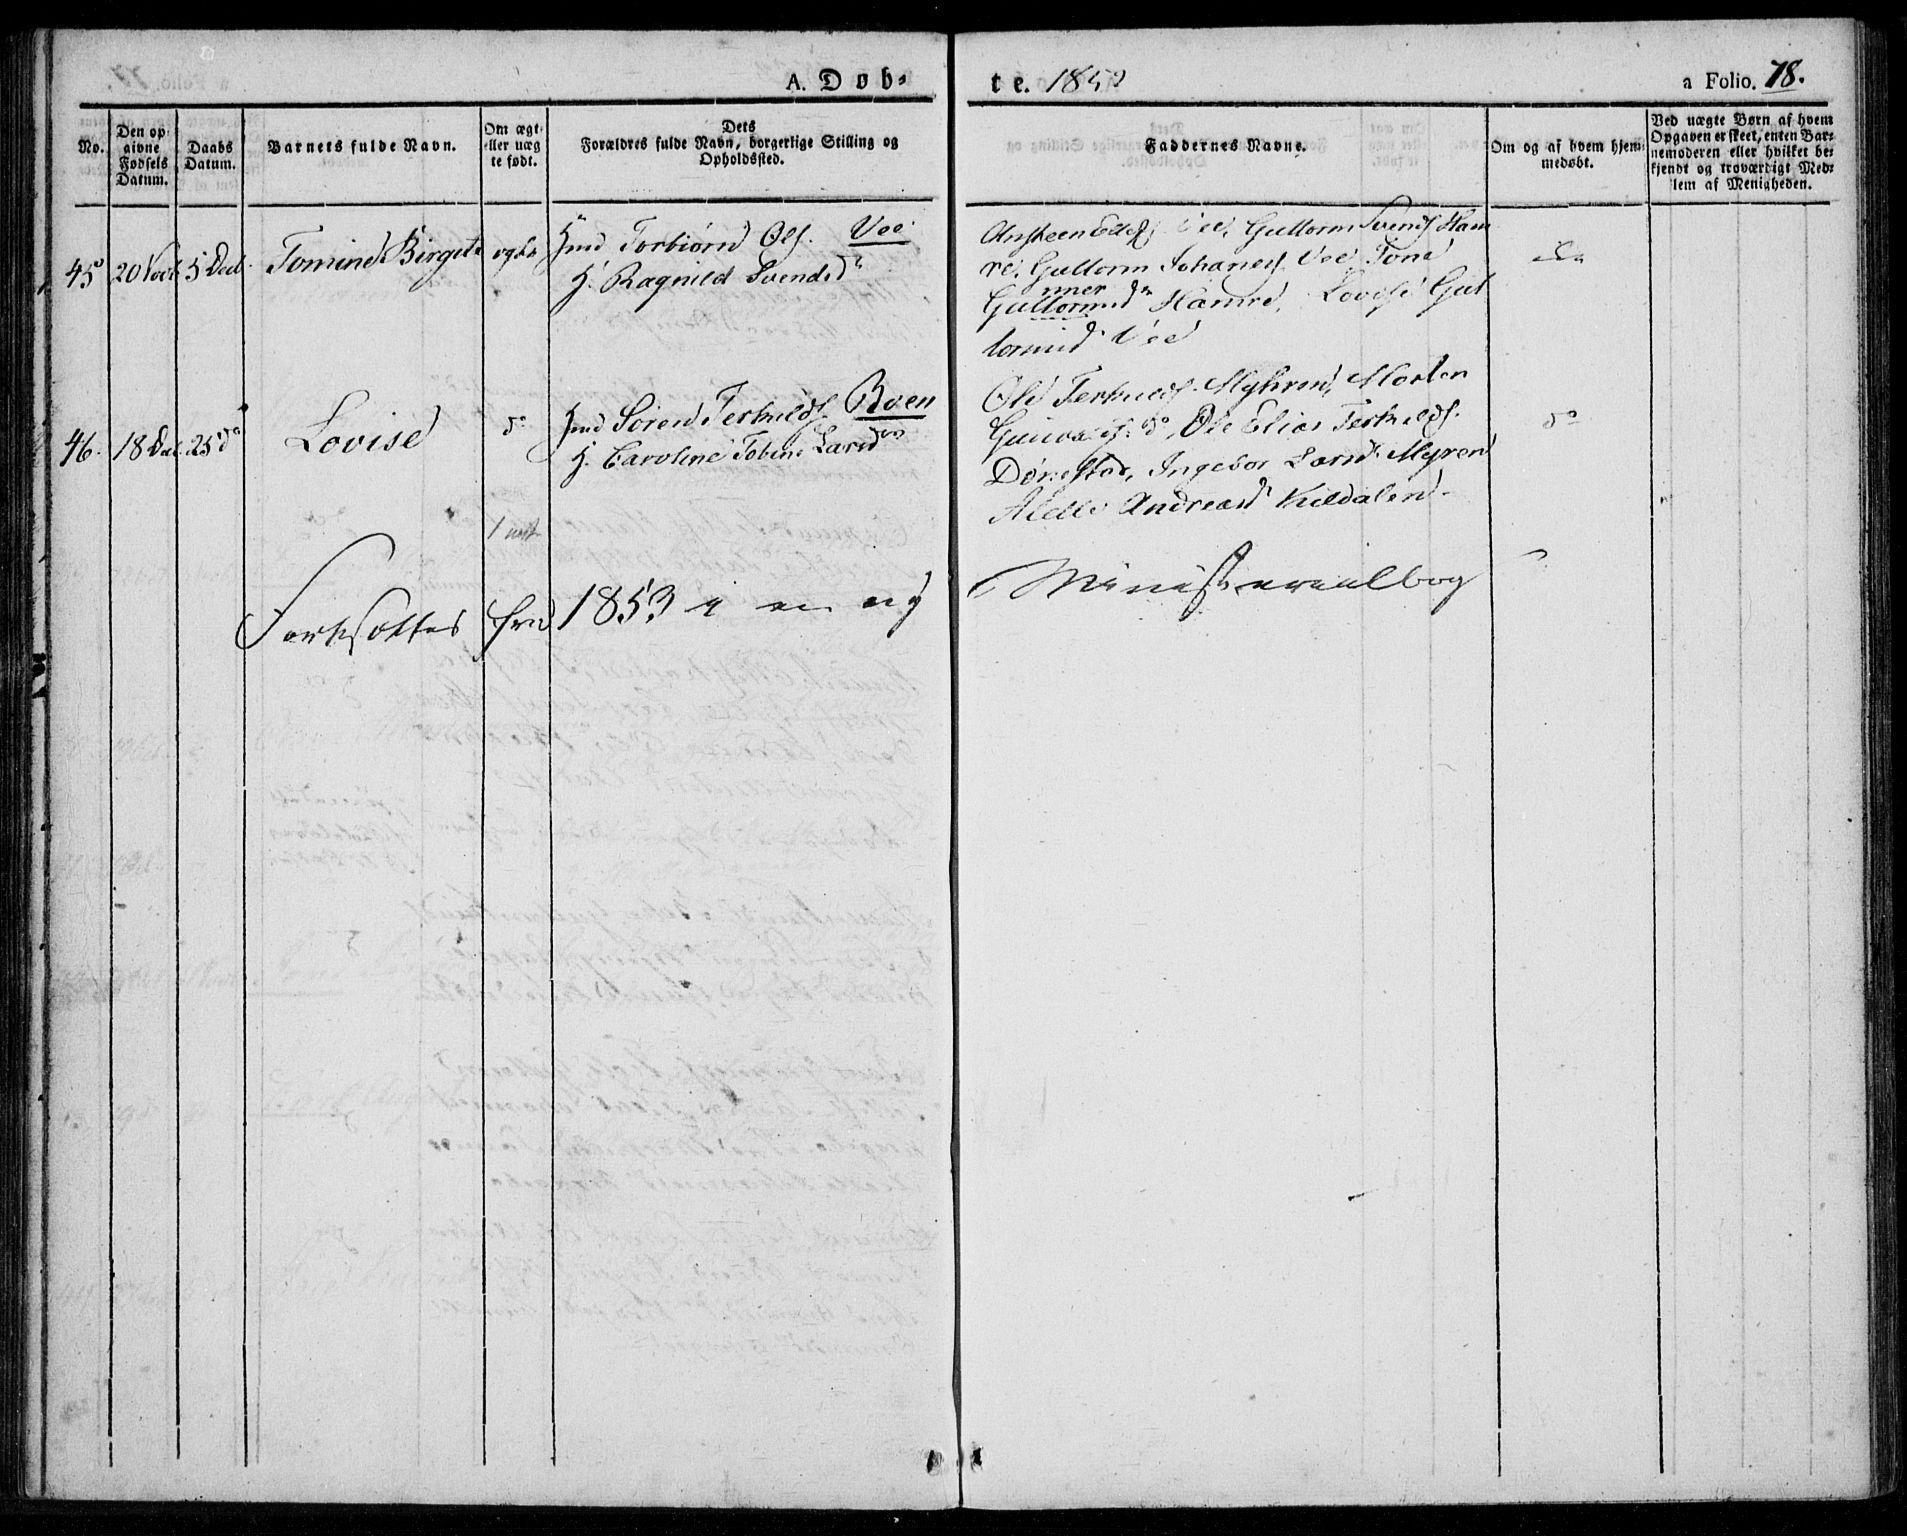 A. Døb-
te. 1852
a Folio. 78.
No.
Den op-
givne
Fødsels
Datum.
Daabs
Datum.
Barnets fulde Navn.
Om ægt-
eller uæg
te født.
Dets
Forældres fulde Navn, borgerlige Stilling og
Opholdssted.
Faddernes Navne.
Om og af hvem hjem-
medøbt.
Ved uægte Børn af hvem
Opgaven er skeet, enten Bar-
nemoderen eller hvilket be-
kjendt og troværdigt Med-
lem af Menigheden.
45 20 Novb 5 Decb. Tomine Birgete ægte
Hmd Torbiørn Ols. Vee
H. Ragnild Svendsd
Guttorm Svends Ham
re, Guttorm Johanes. Vee Tone
Guttormsd Hamre, Lovise Gut
tormsd Vee
46. 18 Dec. 25 do Lovise do
Hmd Søren Terkelds. Roen
H. Caroline Tobine Larsd
Ole Terkelds. Myhren, Morten
do, Ole Elias Terkelds.
Dønestad, Ingebor Larsd Myren
Alette Andreasd Kildalen
do
Fortsættes fra 1853 i en ny Ministerialbog